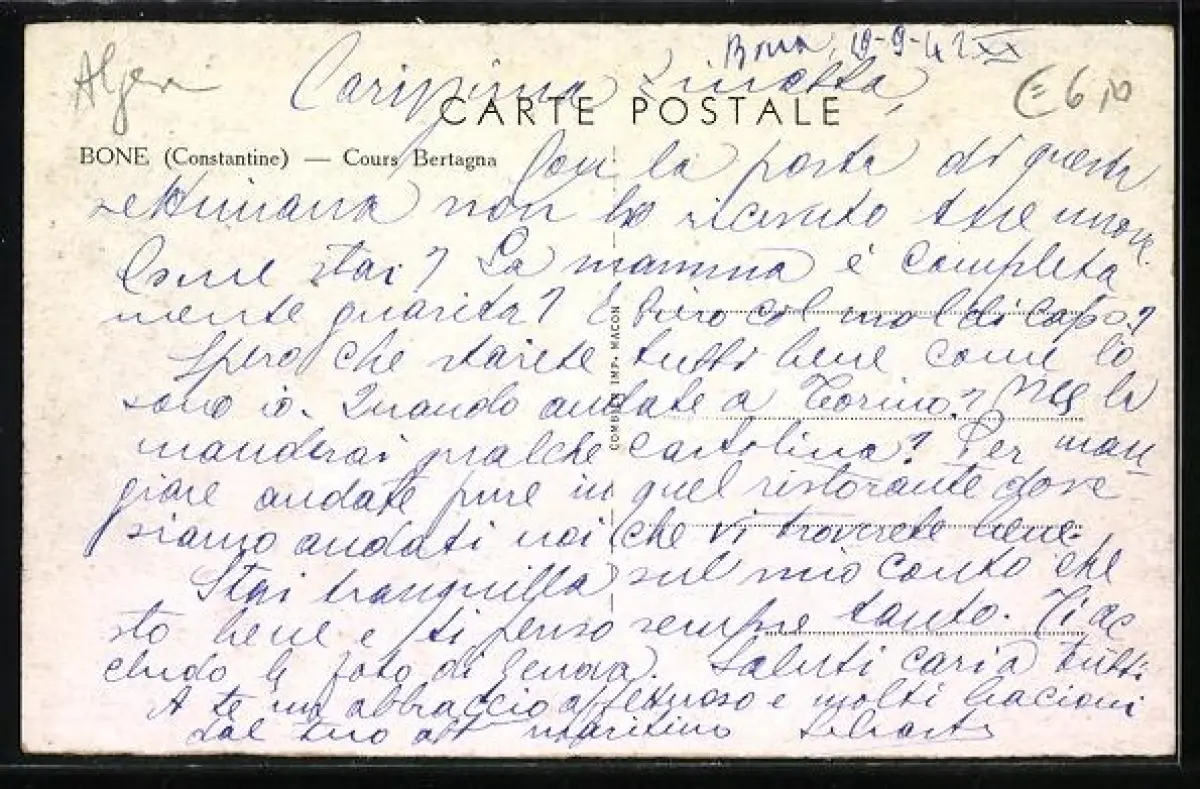 Bona, 19-9-42 XX
Algeri
€ 6,10
Carissima Linetta,
CARTE POSTALE
BONE (Constantine) — Cours Bertagna
Con la posta di questa
settimana non ho ricevuto tue nuove.
Come stai? La mamma è completa
mente guarita? E Piero col mal di capo?
Spero che starete tutti bene come lo
sono io. Quando andate a Torino? Me la
manderai qualche cartolina? Per man
giare andate pure in quel ristorante dove
siamo andati noi che vi troverete bene.
Stai tranquilla sul mio conto che
sto bene e ti penso sempre tanto. Ti ac
cludo la foto di Genova. Saluti cari a tutti
A te un abbraccio affettuoso e molti bacioni
dal tuo aff maritino
COMBIER IMP. MACON